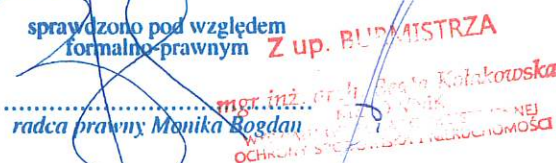 sprawdzono pod względem
formalno-prawnym
radca prawny Monika Bogdan
Z up. BURMISTRZA
mgr inż. Kołakowska
NEJ
OCHRONY NIERUCHOMOŚCI